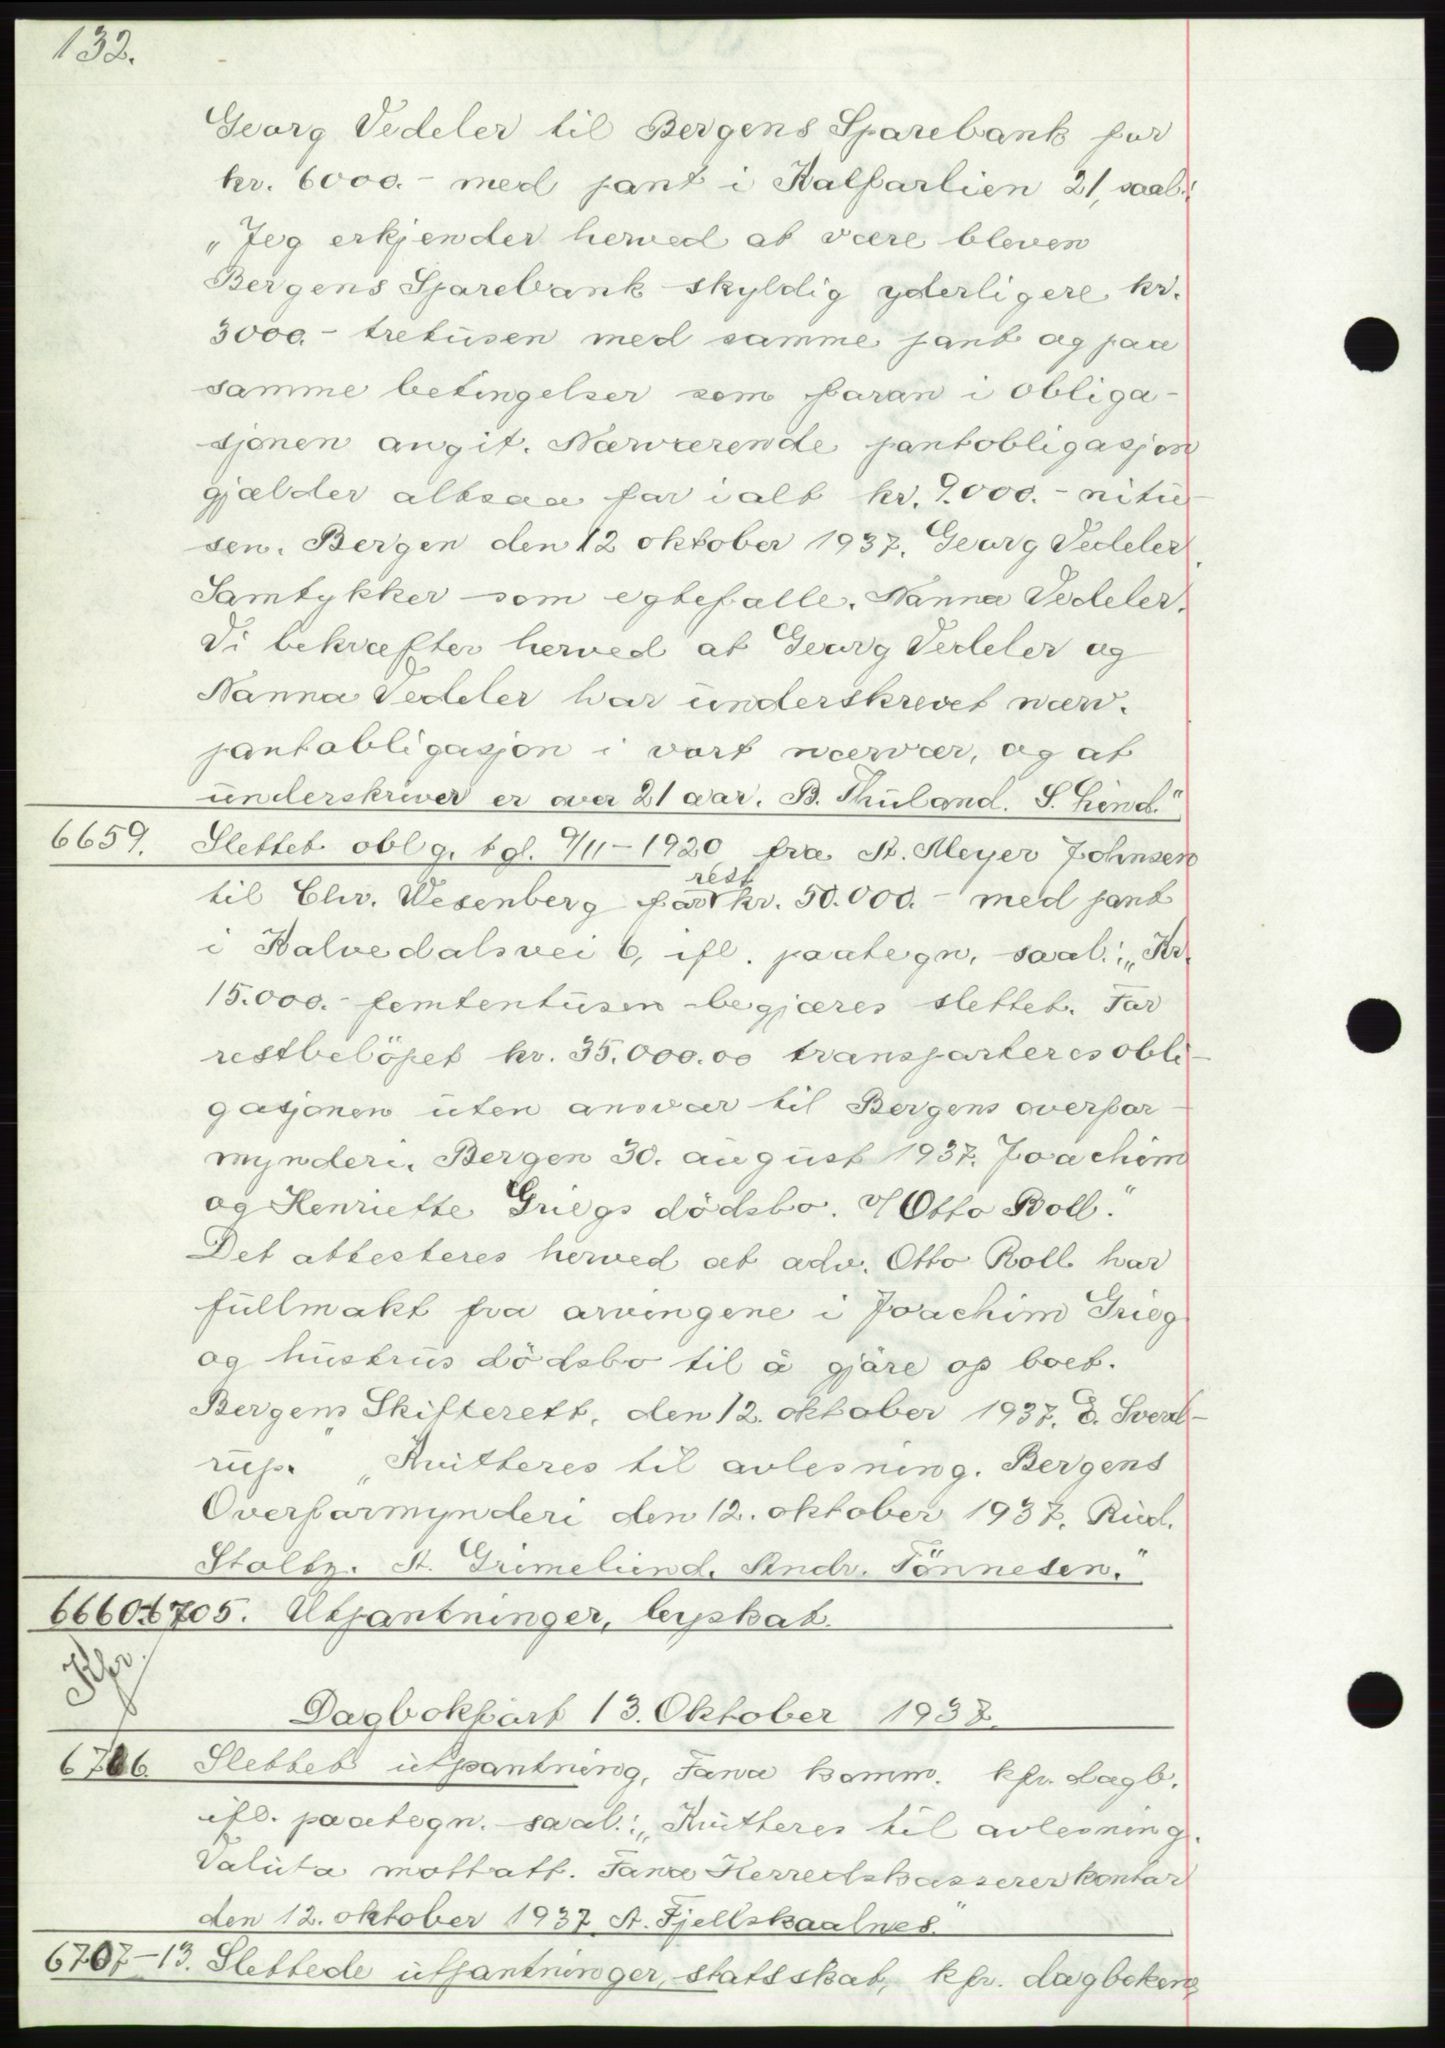 132.
Georg Vedeler til Bergens Sparebank for
kr. 6000.- med pant i Kalfarlien 21, saal.:
„Jeg erkjender herved at være bleven
Bergens Sparebank skyldig yderligere kr.
3000.- tretusen med samme pant og paa
samme betingelser som foran i obliga-
sjonen angit. Nærværende pantobligasjon
gjælder altsaa for ialt kr. 9.000.- nitu-
sen. Bergen den 12 oktober 1937. Georg Vedeler.
Samtykker som egtefælle. Nanna Vedeler.
Vi bekræfter herved at Georg Vedeler og
Nanna Vedeler har underskrevet nærv.
pantobligasjon i vort nærvær, og at
underskriver er over 21 aar. B. Thuland. S. Lind."
6659. Slettet oblg. tgl. 9/11-1920 fra St. Meyer Johnsen
til Chr. Wesenberg for rest kr. 50.000.- med pant
i Kalvedalsvei 6, ifl. paategn. saal.: „Kr.
15.000.- femtentusen begjæres slettet. For
restbelöpet kr. 35.000.00 transporteres obli-
gasjonen uten ansvar til Bergens overfor-
mynderi. Bergen 30. august 1937. Joachim
og Henriette Griegs dödsbo. v/ Otto Roll."
Det attesteres herved at adv. Otto Roll har
fullmakt fra arvingene i Joachim Grieg
og hustrus dödsbo til å gjøre op boet.
Bergens Skifterett, den 12. oktober 1937. E. Sverd-
rup. „Kvitteres til avlesning. Bergens
Overformynderi den 12. oktober 1937. Rud.
Stoltz. A. Grimelund. Andr. Tönnesen."
6660-6705. Utpantninger, byskat.
Kfr.
Dagbokført 13. Oktober 1937.
6706. Slettet utpantning, Fana komm. kfr. dagb.
ifl. paategn. saal.: „Kvitteres til avlesning.
Valuta mottatt. Fana Herredskassererkontor
den 12. oktober 1937 A. Fjellskaalnes."
6707-13. Slettede utpantninger, statsskat, kfr. dagboken.